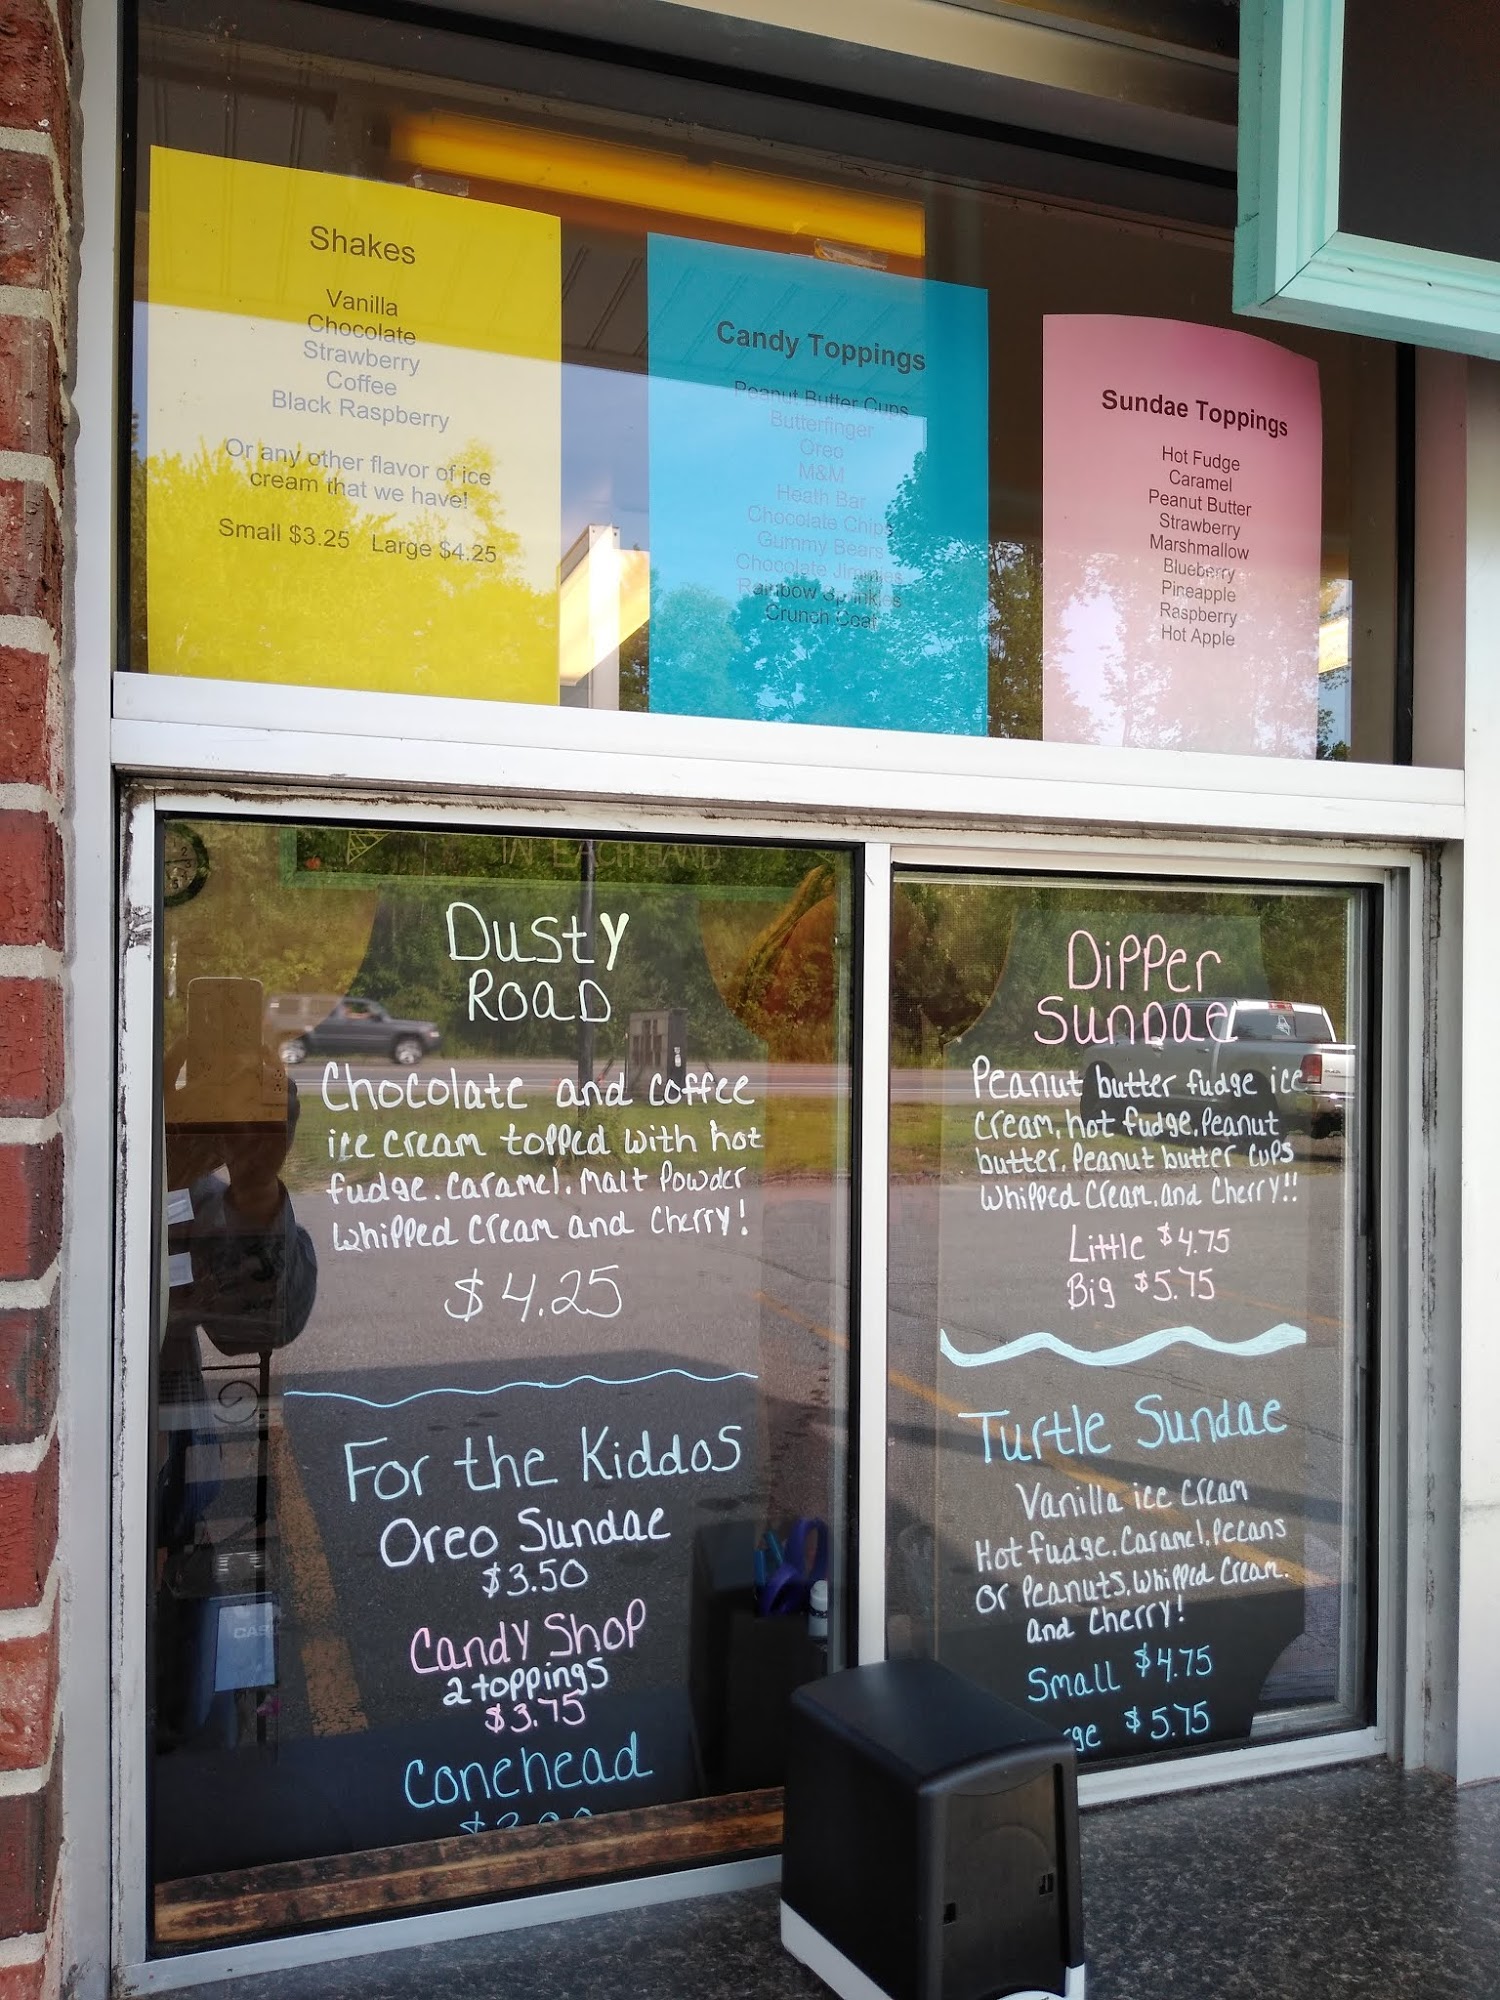 Shakes
Vanilla
Chocolate
Strawberry
Coffee
Black Raspberry
Or any other flavor of ice
cream that we have!
Small $3.25 Large $4.25
Candy Toppings
Peanut Butter Cups
Butterfinger
Oreo
M&M
Heath Bar
Chocolate Chips
Gummy Bears
Chocolate Jimmies
Rainbow Sprinkles
Crunch Coat
Sundae Toppings
Hot Fudge
Caramel
Peanut Butter
Strawberry
Marshmallow
Blueberry
Pineapple
Raspberry
Hot Apple
IN EACH HAND
Dusty
Road
Chocolate and coffee
ice cream topped with hot
fudge. Caramel. Malt Powder
Whipped Cream and Cherry!
$4.25
For the Kiddos
Oreo Sundae
$3.50
Candy Shop
2 toppings
$3.75
Conehead
Dipper
Sundae
Peanut butter fudge ice
cream, hot fudge, Peanut
butter, Peanut butter cups
Whipped Cream, and Cherry!!
Little $4.75
Big $5.75
Turtle Sundae
Vanilla ice cream
Hot fudge, Caramel, Pecans
or Peanuts, Whipped Cream,
and Cherry!
Small $4.75
rge $5.75